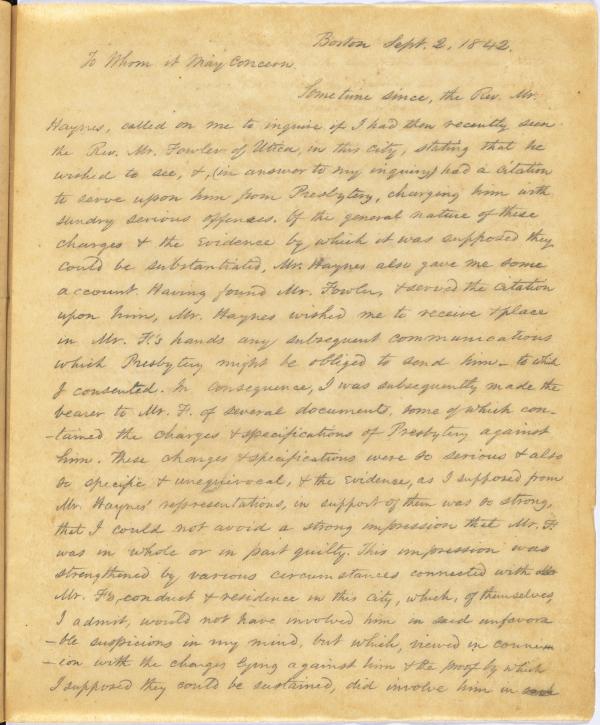 Boston Sept. 2, 1842.
To Whom it May Concern.
Sometime since, the Rev. Mr.
Haynes, called on me to inquire if I had then recently seen
the Rev. Mr. Fowler of Utica, in this city, stating that he
wished to see, &, (in answer to my inquiry) had a citation
to serve upon him from Presbytery, charging him with
sundry serious offences. Of the general nature of these
charges & the evidence by which it was supposed they
could be substantiated, Mr. Haynes also gave me some
account. Having found Mr. Fowler, & served the citation
upon him, Mr. Haynes wished me to receive & place
in Mr. F's hands any subsequent communications
which Presbytery might be obliged to send him – to which
I consented. In consequence, I was subsequently made the
bearer to Mr. F. of several documents, some of which con-
-tained the charges & specifications of Presbytery against
him. These charges & specifications were so serious & also
so specific & unequivocal, & the evidence, as I supposed from
Mr. Haynes' representations, in support of them was so strong,
that I could not avoid a strong impression that Mr. F.
was in whole or in part guilty. This impression was
strengthened by various circumstances connected with
Mr. F's conduct & residence in this city, which, of themselves,
I admit, would not have involved him in said unfavora
-ble suspicions in my mind, but which, viewed in connex
-ion with the charges lying against him & the proof by which
I supposed they could be sustained, did involve him in